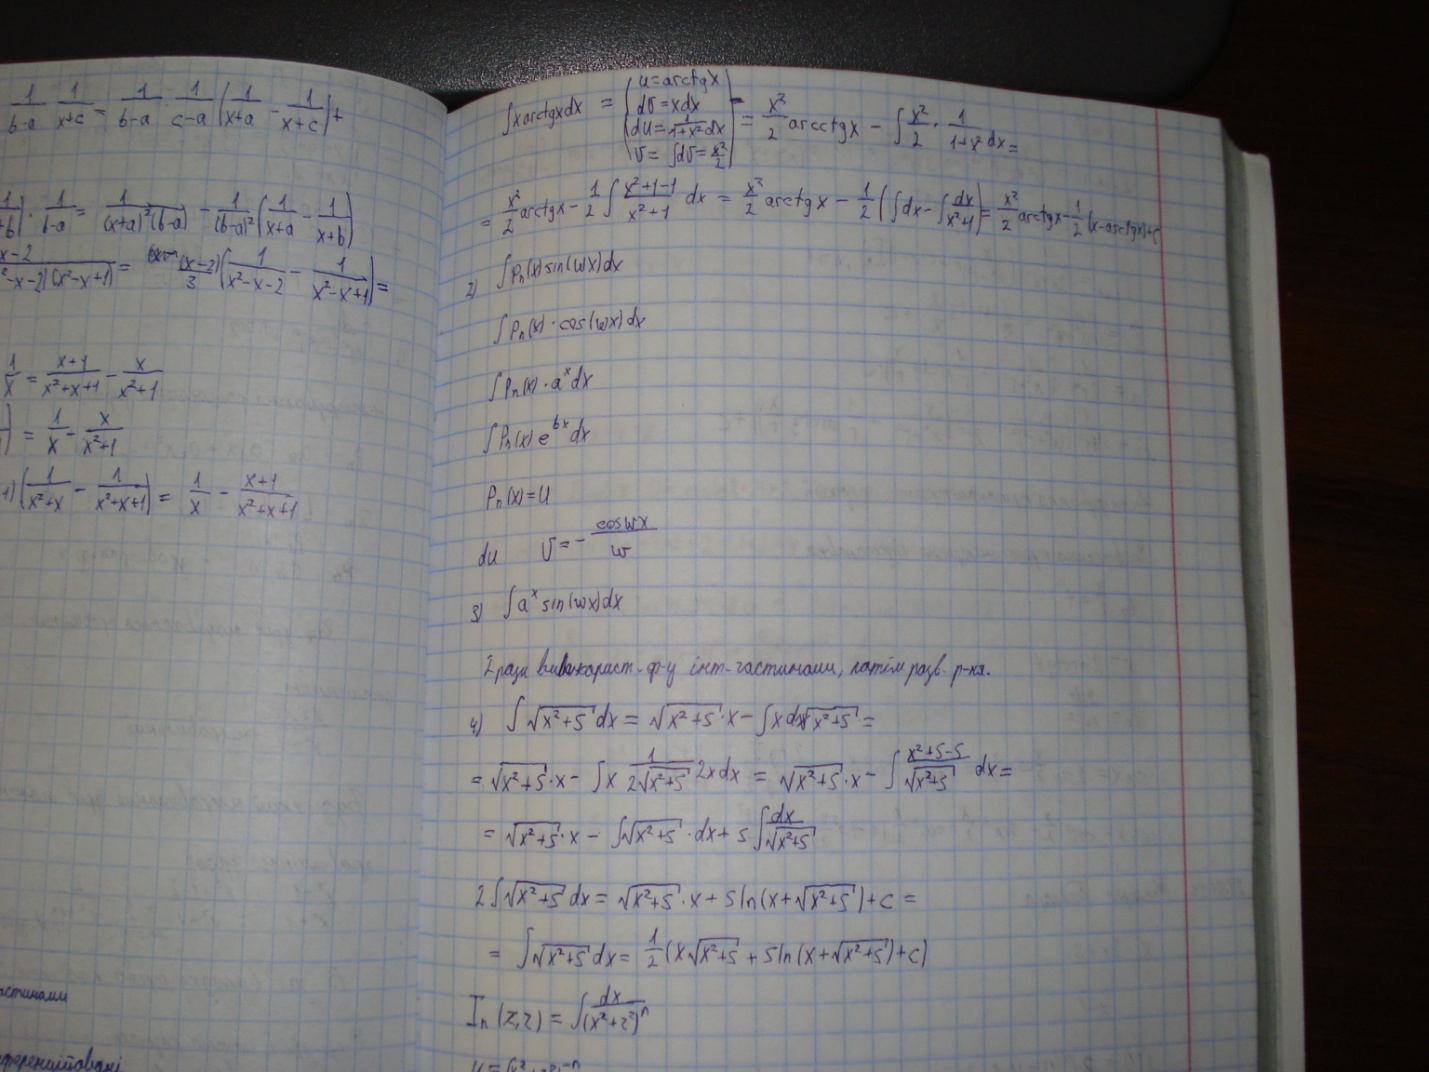 1/(b-a) · 1/(x+c) = 1/(b-a) · 1/(c-a) (1/(x+a) - 1/(x+c)) +
· 1/(b-a) = 1/((x+a)²(b-a)) - 1/(b-a)² (1/(x+a) - 1/(x+b))
= (x-2)/3 (1/(x²-x-2) - 1/(x²-x+1)) =
1/x = (x+1)/(x²+x+1) - x/(x²+1)
= 1/x - x/(x²+1)
(1/(x²+x) - 1/(x²+x+1)) = 1/x - (x+1)/(x²+x+1)
∫x arctgx dx = (u = arctgx
dv = xdx
du = 1/(1+x²) dx
v = ∫dv = x²/2) = x²/2 arcctgx - ∫ x²/2 · 1/(1+x²) dx =
= x²/2 arctgx - 1/2 ∫ (x²+1-1)/(x²+1) dx = x²/2 arctgx - 1/2 (∫dx - ∫ dx/(x²+1)) = x²/2 arctgx - 1/2 (x - arctgx) + c
2) ∫Pn(x) sin(wx)dx
∫Pn(x) · cos(wx)dx
∫Pn(x) · a^x dx
∫Pn(x) e^(bx) dx
Pn(x) = u
du v = - coswx/w
3) ∫a^x sin(wx)dx
2 рази ф-у інт. частинами, потім розв. р-ня.
4) ∫√(x²+5) dx = √(x²+5) · x - ∫x d√(x²+5) =
= √(x²+5) · x - ∫x 1/(2√(x²+5)) 2x dx = √(x²+5) · x - ∫ (x²+5-5)/√(x²+5) dx =
= √(x²+5) · x - ∫√(x²+5) · dx + 5∫ dx/√(x²+5)
2∫√(x²+5) dx = √(x²+5) · x + 5ln(x+√(x²+5)) + c =
= ∫√(x²+5) dx = 1/2 (x√(x²+5) + 5ln(x+√(x²+5)) + c)
In(z,z) = ∫ dx/(x²+z²)^n